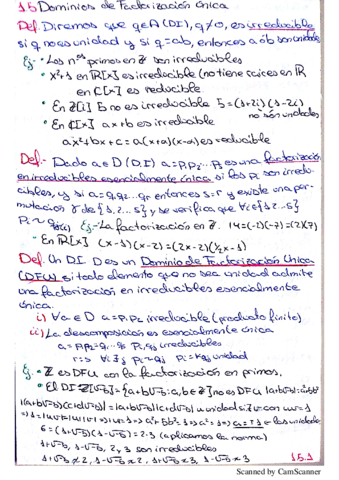 1.5 Dominios de Factorización única
Def. Diremos que q∈A (DI), q≠0, es irreducible
si q no es unidad y si q=ab, entonces a ó b son unidades
Ej: • Los nºs primos en ℤ son irreducibles
• x²+1 en ℝ[x] es irreducible (no tiene raíces en ℝ
en ℂ[x] es reducible
• En ℤ[i] 5 no es irreducible 5=(1+2i)(1-2i)
no son unidades
• En ℂ[x] ax+b es irreducible
ax²+bx+c = a(x+α)(x-α) es reducible
Def.- Dado a∈D (DI) a=p₁p₂...pₛ es una factorización
en irreducibles esencialmente única si los pᵢ son irreduci-
bles, y si a=q₁q₂...qᵣ entonces s=r y existe una per-
mutación γ de {1,2...s} y se verifica que ∀i∈{1,2...s}
Ej.- La factorización en ℤ. 14=(-2)(-7)=(2)(7)
• En ℝ[x] (x-1)(x-2)=(2x-2)(½x-1)
Def. Un DI D es un Dominio de Factorización Única
(DFU) si todo elemento que no sea unidad admite
una factorización en irreducibles esencialmente
única.
i) ∀a∈D a=p₁...pₛ irreducible (producto finito)
ii) La descomposición es esencialmente única
a=p₁p₂...=q₁...qᵣ pᵢ,qⱼ irreducibles
r=s ∀i ∃j pᵢ~qⱼ pᵢ=uqⱼ unidad
Ej. • ℤ es DFU con la factorización en primos.
• El DI ℤ[√-5]={a+b√-5:a,b∈ℤ} no es DFU
6=(1+√-5)(1-√-5)=2·3 (aplicamos la norma)
1+√-5, 1-√-5, 2 y 3 son irreducibles
1+√-5≁2, 1-√-5≁2, 1+√-5≁3, 1-√-5≁3
1.5.1
Scanned by CamScanner